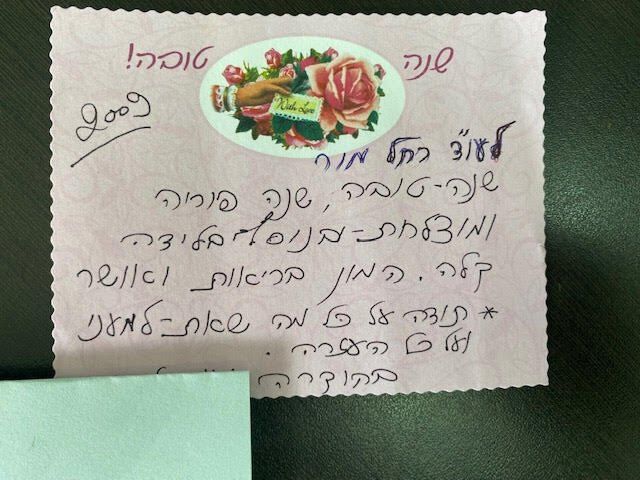 שנה טובה!
With Love
2009
לעו"ד רחל מור
שנה-טובה, שנה פוריה
ומוצלחת-בנוסף בלידה
קלה. המון בריאות ואושר
* תודה על כל מה שאת-למעני
ועל העזרה.
בתודה